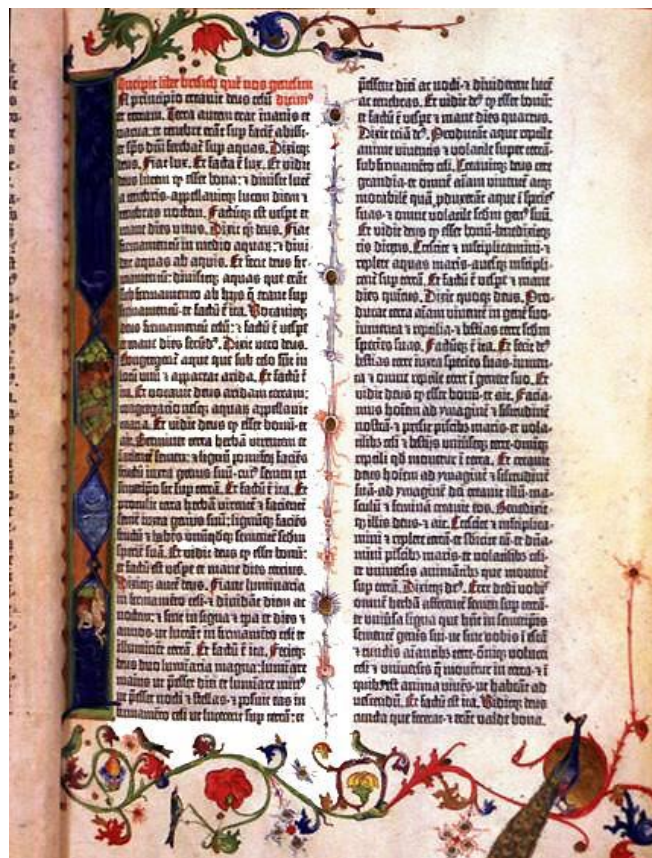 Incipit liber bresith quē nos genesim
In principio creavit deus celū dicim⁹
et terram. Terra autem erat inanis et
vacua: et tenebre erāt sup faciē abissi:
et spūs dñi ferebat̄ sup aquas. Dixitq;
deus. Fiat lux. Et facta ē lux. Et vidit
deus lucem q esset bona: et divisit lucē
a tenebris. appellavitq; lucem diem et
tenebras noctem. Factūq; est vespe et
mane dies unus. Dixit q; deus. Fiat
firmamentū in medio aquar̄: et divi-
dat aquas ab aquis. Et fecit deus fir-
mamentū: divisitq; aquas que erāt
sub firmamento ab hijs q erant sup
firmamentū: et factū ē ita. Vocavitq;
deus firmamentū celū: et factū ē vespe
et mane dies secūd⁹. Dixit vero deus.
Congregent̄ aque que sub celo sūt in
locū unū et appareat arida. Et factū ē
ita. Et vocavit deus aridam terram:
congregacōesq; aquar̄ appellavit
maria. Et vidit deus q esset bonū. et
ait. Germinet terra herbā virentem et
facientē semen: et lignū pomiferū faciēs
fructū iuxta genus suū. cui⁹ semen in
semetipō sit sup terrā. Et factū ē ita. Et
protulit terra herbā virentē et facientē
semē iuxta genus suū: lignūq; faciēs
fructū et habēs unūqdq; sementē scdm
speciē suā. Et vidit deus q esset bonū:
et factū est vespe et mane dies tercius.
Dixitq; autē deus. Fiant luminaria
in firmamēto celi. et dividāt diem ac
noctem: et sint in signa et tpa et dies et
annos: ut luceāt in firmamēto celi et
illuminēt terrā. Et factū ē ita. Fecitq;
deus duo luminaria magna: luminare
maius ut pesset diei et luminare min⁹
ut pesset nocti et stellas: et posuit eas in
firmamēto celi ut lucerent sup terrā: et
pessent diei ac nocti. et dividerent lucē
ac tenebras. Et vidit de⁹ q esset bonū:
et factū ē vespe et mane dies quartus.
Dixit etiā de⁹. Producāt aque reptile
anime viventis et volatile super terrā:
sub firmamēto celi. Creavitq; deus cete
grandia. et omnē aīam viventē atq;
motabilē quā pduxerāt aque ī species
suas. et omne volatile scdm gen⁹ suū.
Et vidit deus q esset bonū. benedixitq;
eis dicens. Crescite et multiplicamini. et
replete aquas maris. avesq; multipli-
cent̄ sup terrā. Et factū ē vespe et mane
dies quintus. Dixit quoq; deus. Pro-
ducat terra aīam viventē in genē suo.
iumenta et reptilia. et bestias terre scdm
species suas. Factūq; ē ita. Et fecit de⁹
bestias terre iuxta species suas. iumen-
ta et omne reptile terre ī genere suo. Et
vidit deus q esset bonū. et ait. Facia-
mus hoīem ad ymaginē et silitudinē
nostrā. et presit piscib; maris. et vola-
tilib; celi et bestijs univseq; terre. omniq;
reptili qd movetur ī terra. Et creavit
deus hoīem ad ymaginē et silitudinē
suā. ad ymaginē dei creavit illū. ma-
sculū et feminā creavit eos. Benedixit
q; illis deus. et ait. Crescite et multiplica-
mini et replete terrā. et subicite eā. et dñā-
mini piscib; maris. et volatilib; celi.
et universis animātib; que movent̄
sup terrā. Dixitq; de⁹. Ecce dedi vobis
omnē herbā afferentē semen sup terrā.
et univsa ligna que hñt in semetipis
sementē genis sui. ut sint vobis ī escā
et cunctis aīantib; terre. omniq; volucri
celi et universis q movent̄ in terra. et ī
quib; est anima vivēs. ut habeāt ad
vescendū. Et factū est ita. Viditq; deus
cuncta que fecerat. et erāt valde bona.